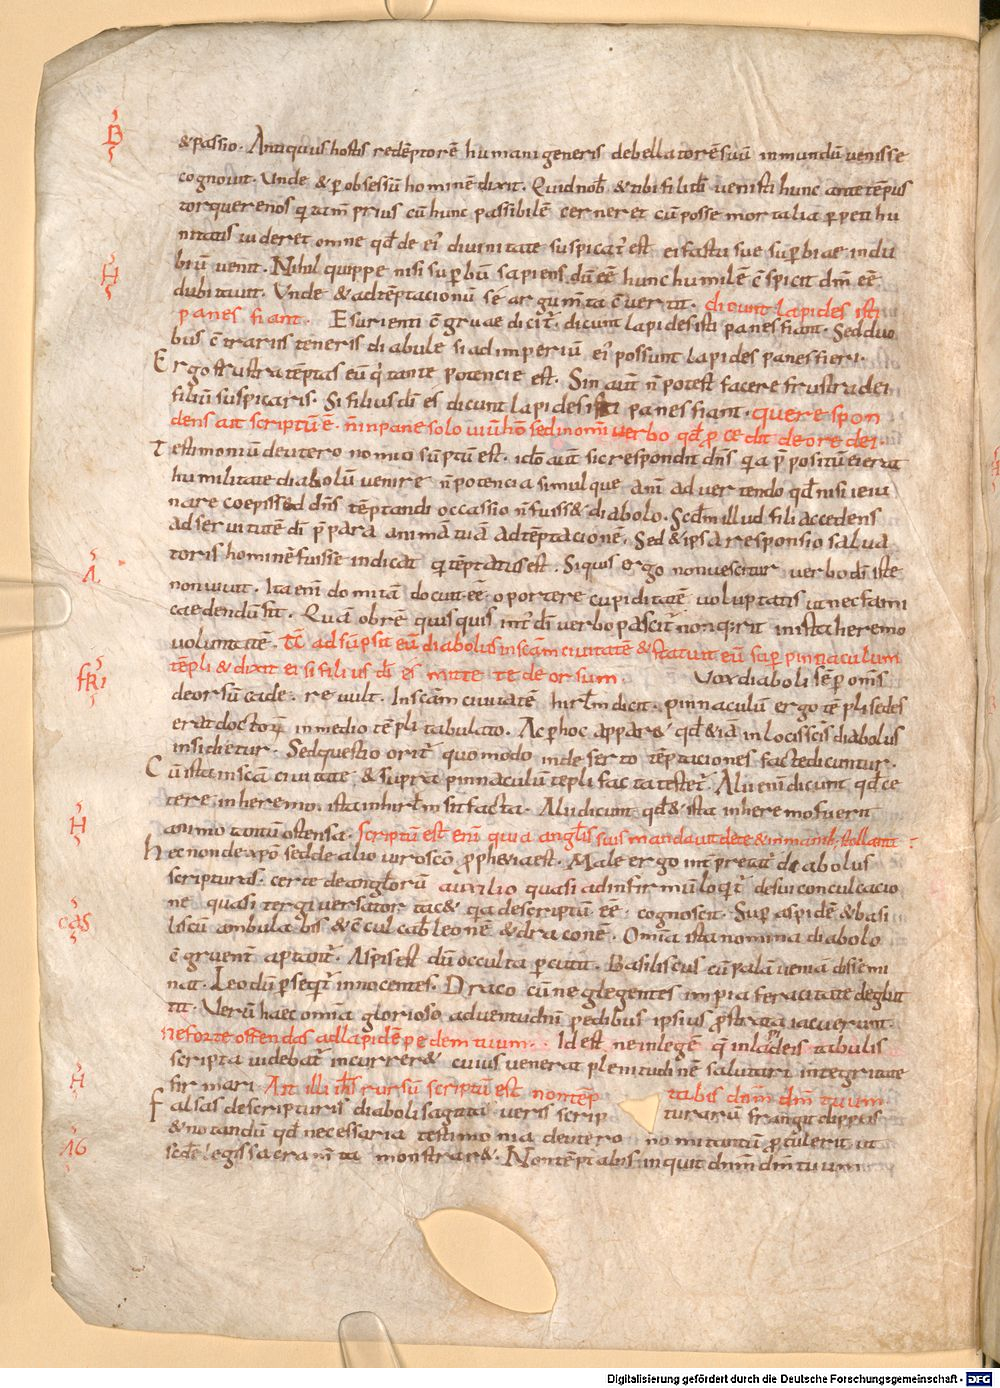 B
&passio. Antiquus hostis redēptorē humani generis debellatorē suū inmundū uenisse
cognouit. Unde & ꝑ obsessū hominē dixit. Quid nob̄ & tibi fili dī uenisti huc ante tēpus
torquere nos q̄ tam̄ prius cū hunc passibilē cerneret cū posse mortalia ꝑpeti hu
H
nitatis uideret omne qđ de ei' diuinitate suspicat' est ei fastu sue suꝑbiae in du
biū uenit. Nihil quippe nisi suꝑbū sapiens dū eē hunc humilē c̄spicit dm̄ eē
dubitauit. Unde & ad tēptacionū sē argum̄ta c̄uertit. dic ut lapides isti
panes fiant. Esurienti c̄gruae dicit'. dic ut lapides isti panes fiant. Sed duo
bus c̄trariis teneris diabule si ad imperiū ei' possunt lapides panes fieri.
Ergo frustra tēptas eū q' tante potencie est. Sin aut̄ n̄ potest facere frustra dei
filiū suspicaris. Si filius dī es dic ut lapides isti panes fiant. que respon
dens ait scriptū ē. n̄ in pane solo uiuit hō sed in om̄i uerbo qđ ꝓcedit de ore dei.
Testimoniū deuteronomio sūptū est. ideo aut̄ sic respondit dn̄s q̄a p̄positū ei erat
humilitate diabolū uenire n̄ potencia simulque anī aduertendo qđ nisi ieiu
nare coepiss& dn̄s tēptandi occassio n̄ fuiss& diabolo. Scđm illud fili accedens
ad seruitutē dī p̄para animā tuā ad tēptacionē. Sed & ipsa responsio salua
A
toris hominē fuisse indicat q' tēptatus est. Siquis ergo non uescitur uerbo dī iste
non uiuit. Ita enī domitā docuit eē oportere cupiditatē uoluptatis ut nec fami
caedendū sit. Quā obrē quisquis int' dī uerbo pascit' non q̄rit in ista heremo
uoluntatē. Tc̄ adsūpsit eū diabolus in scām ciuitatē & statuit eū suꝑ pinnaculum
fri
tēpli & dixit ei si filius dī es mitte te deorsum. Vox diaboli sēꝑ om̄s
deorsū cade. re uult. In scām ciuitatē hirl̄m dicit. pinnaculū ergo tēpli sedes
erat doctoꝝ in medio tēpli tabulato. Ac ꝑ hoc appar& qđ & iā in locis sc̄is diabolus
insidietur. Sed questio orit' quomodo inde serto tēptaciones facte dicuntur.
Cū ista in scām ciuitate & supra pinnaculū tēpli facta testet'. Alii enī dicunt qđ ce
tere in heremo. ista in hirl̄m sit facta. Alii dicunt qđ & ista in heremo fuerit
H
animo tantū ostensa. scriptū est enī quia anglīs suis mandauit de te & in manib; tollant te
hec non de xp̄o sed de alio uiro scō ꝓph&ia est. Male ergo int'pretat' diabolus
scripturas. certe de anglorū auxilio quasi ad infirmū loq'tʼ de sui conculcacio
cas
ne quasi tergiuersator tac& q̄a descriptū eē. cognoscit. Suꝑ aspidē & basi
liscū ambulabis & c̄culcab leonē & draconē. Om̄ia ista nomina diabolo
c̄gruent aptant'. Aspis est dū occulta ꝑcutit. Basiliscus cū palā uenena dissemi
nat. Leo dū ꝑseq't' innocentes. Draco cū neglegentes impia feracitate deglut
tit. Uerū haec om̄ia glorioso aduentu dn̄i pedibus ipsius ꝓstrata iacuerunt.
ne forte offendas ad lapidē pedem tuum. Id est ne in legē q̄ in lapideis tabulis
H
scripta uidebat' incurrer& cuius uenerat plenitudinē salutari integritate
firmari. Ait illi ih̄s rursū scriptū est non tēp tabis dn̄m dm̄ tuum
falsas de scripturis diaboli sagitta ueris scrip turarū frangit clippeis
16
& notandū qđ necessaria testimonia deutero nomi tantū ꝓtulerit ut
scđe legis sacram̄ta monstrar&. Non tēptabis inquit dn̄m dm̄ tuum
Digitalisierung gefördert durch die Deutsche Forschungsgemeinschaft - DFG